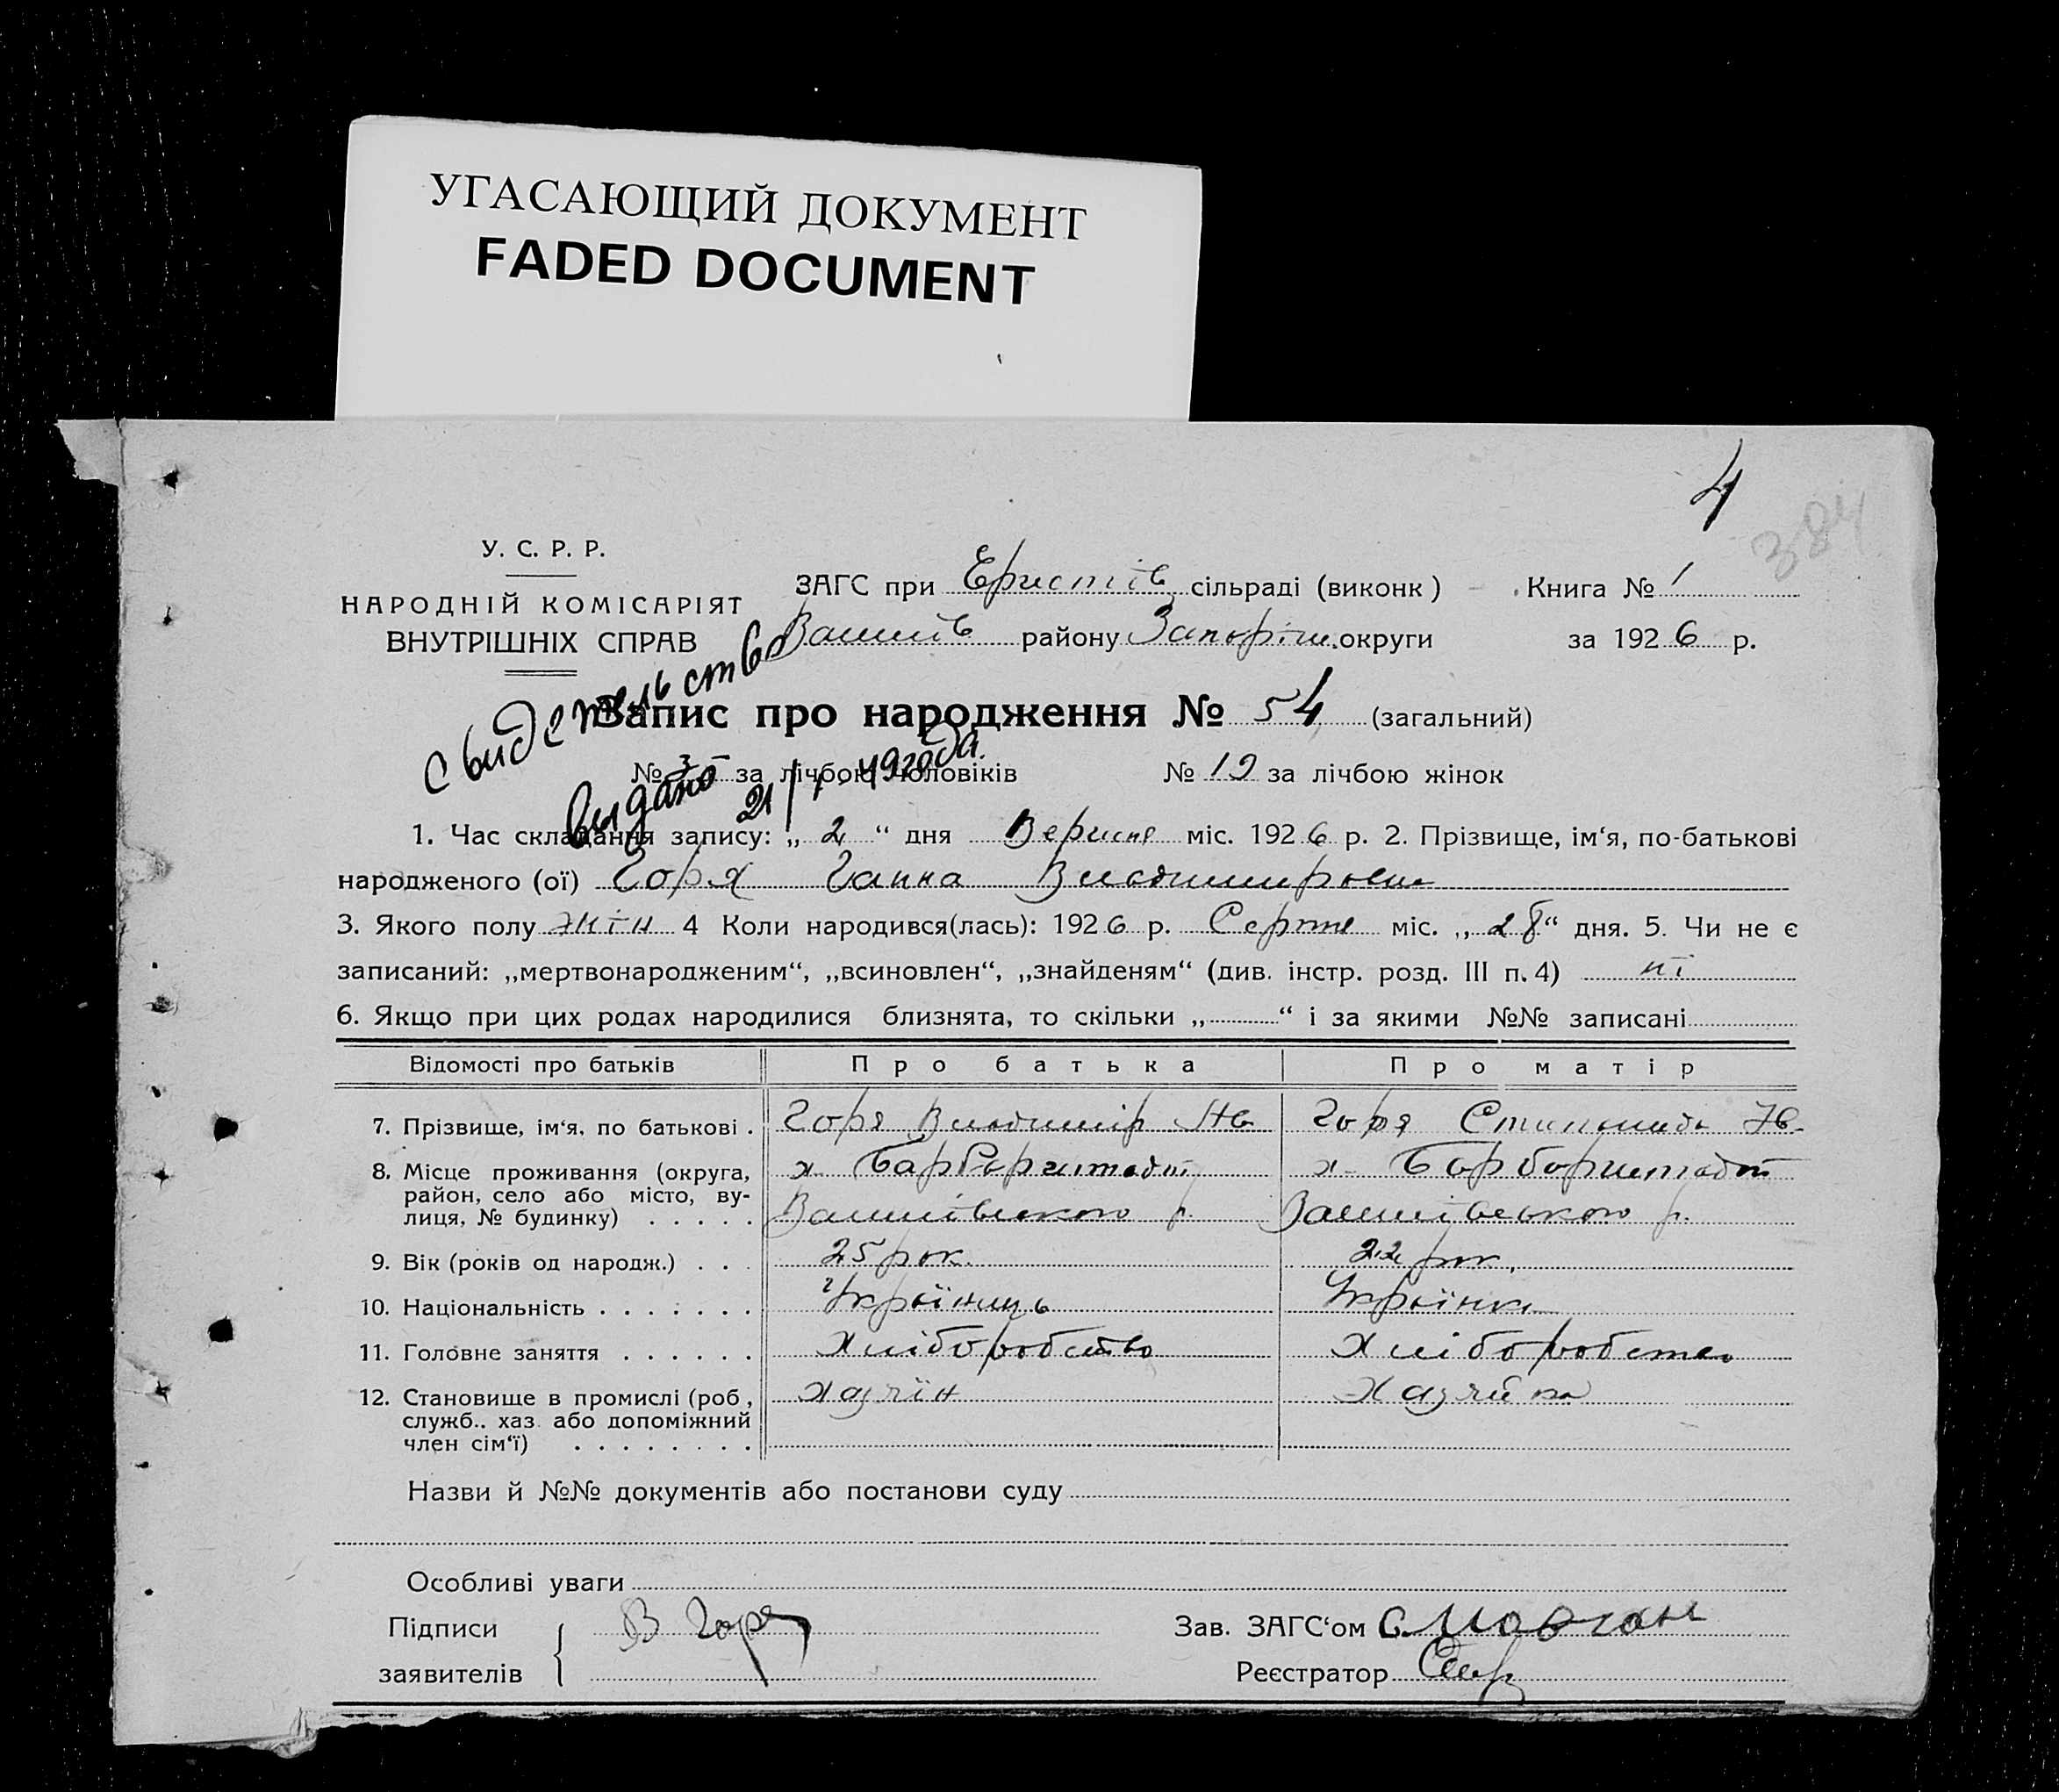 УГАСАЮЩИЙ ДОКУМЕНТ
FADED DOCUMENT
4
384
У. С. Р. Р.
НАРОДНІЙ КОМІСАРІЯТ
ВНУТРІШНІХ СПРАВ
ЗАГС при Еристів сільраді (виконк) Книга № 1
району Запоріж. округи за 1926 р.
свидетельство
Запис про народження № 54 (загальний)
№ за лічбою чоловіків № 19 за лічбою жінок
выдано 21/ 49 года.
1. Час складання запису: „ 2 “ дня Вересня міс. 1926 р. 2. Прізвище, ім‘я, по-батькові
народженого (ої) Горя Ганна Владимировна
3. Якого полу жін 4 Коли народився(лась): 1926 р. Серпня міс. „ 28 “ дня. 5. Чи не є
записаний: „мертвонародженим“, „всиновлен“, „знайденям“ (див. інстр. розд. III п. 4) ні
6. Якщо при цих родах народилися близнята, то скільки „ “ і за якими №№ записані
Відомості про батьків Про батька Про матір
7. Прізвище, ім‘я, по батькові . Горя Владимір Горя
8. Місце проживання (округа, х. х.
район, село або місто, ву- р. р.
лиця, № будинку) . . . . .
9. Вік (років од народж.) . . . 25 рок. 22 рок.
10. Національність . . . . . . . Українець Українка
11. Головне заняття . . . . . . Хліборобство Хліборобство
12. Становище в промислі (роб., хазяїн Хазяйка
служб., хаз. або допоміжний
член сім‘ї) . . . . . . . .
Назви й №№ документів або постанови суду
Особливі уваги
Підписи В Горя Зав. ЗАГС‘ом С. Мовчан
заявителів Реєстратор